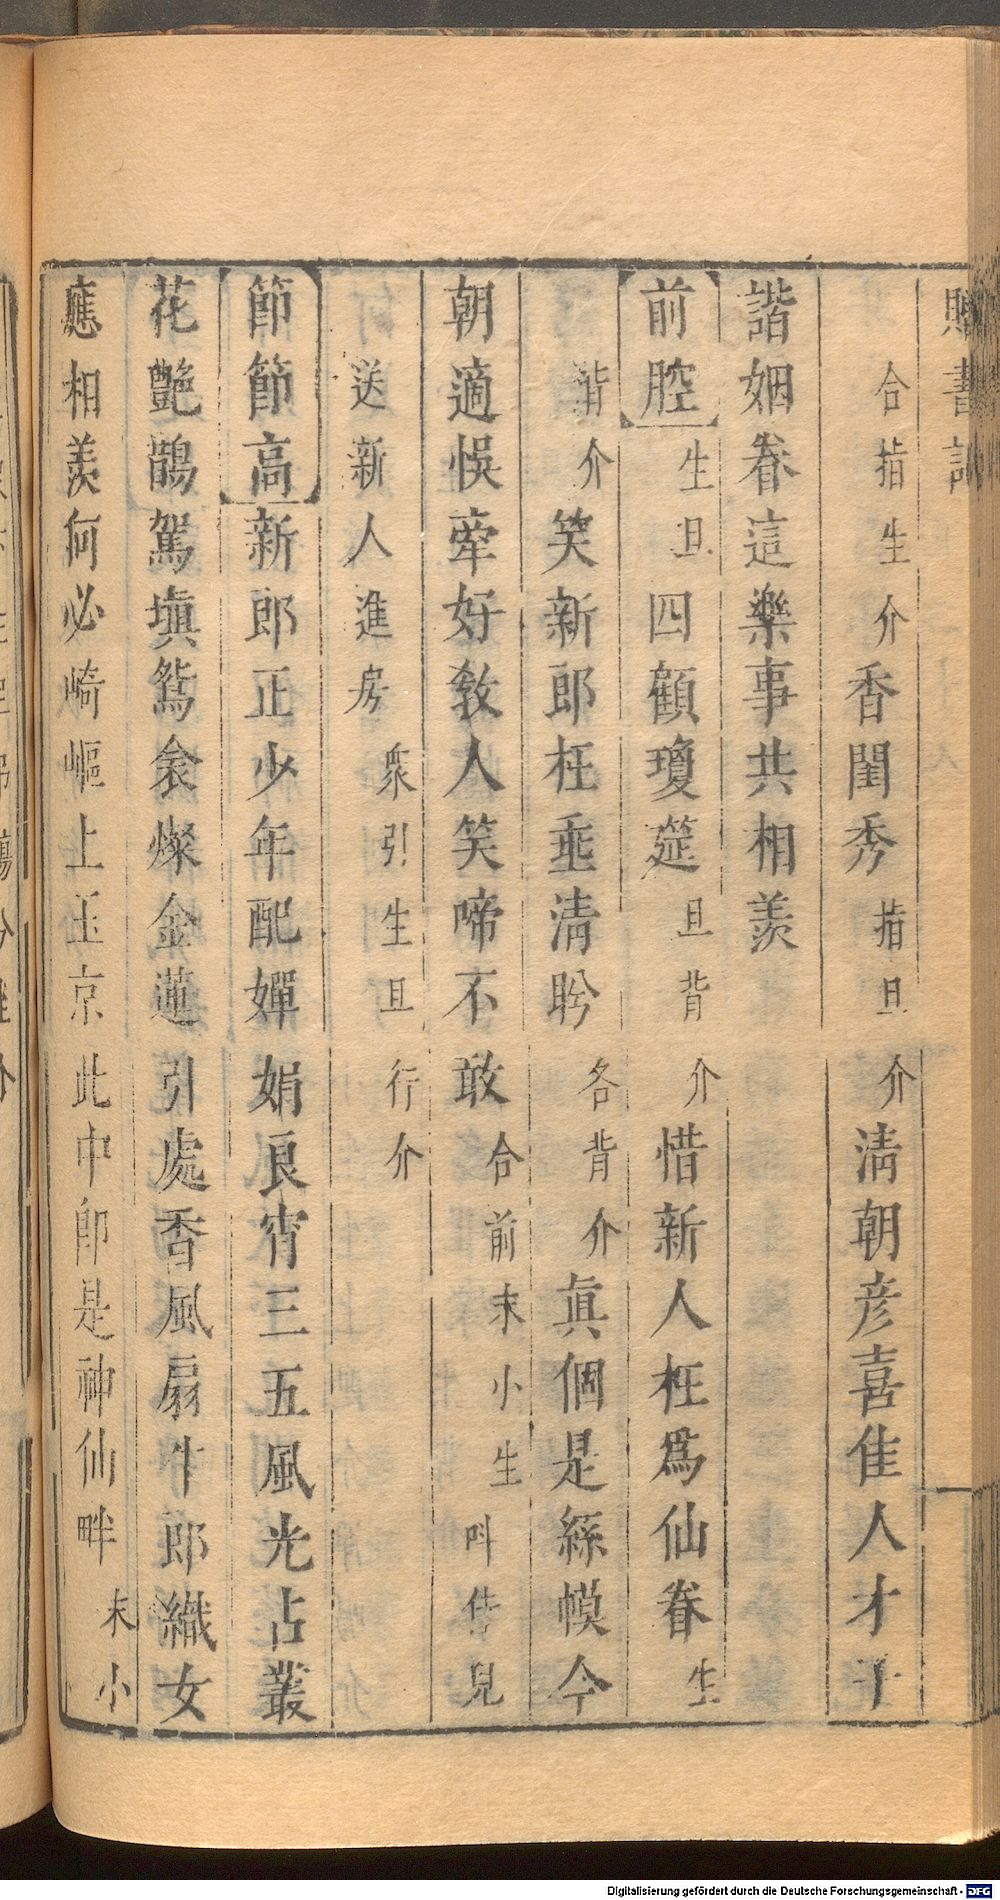 書記
合指生介香閨秀指旦介淸朝彦喜佳人才子
諧姻眷這樂事共相羡
前腔生旦四顧瓊筵旦背介惜新人枉爲仙眷生
背介笑新郎枉垂淸盻各背介眞個是絲幙今
朝適悞牽好敎人笑啼不敢合前末小生叫侍兒
送新人進房衆引生旦行介
節節高新郎正少年配嬋娟良宵三五風光占叢
花艷鵲駕塡鴛衾燦金蓮引處香風扇牛郎織女
應相羡何必崎嶇上玉京此中卽是神仙畔末小
Digitalisierung gefördert durch die Deutsche Forschungsgemeinschaft - DFG